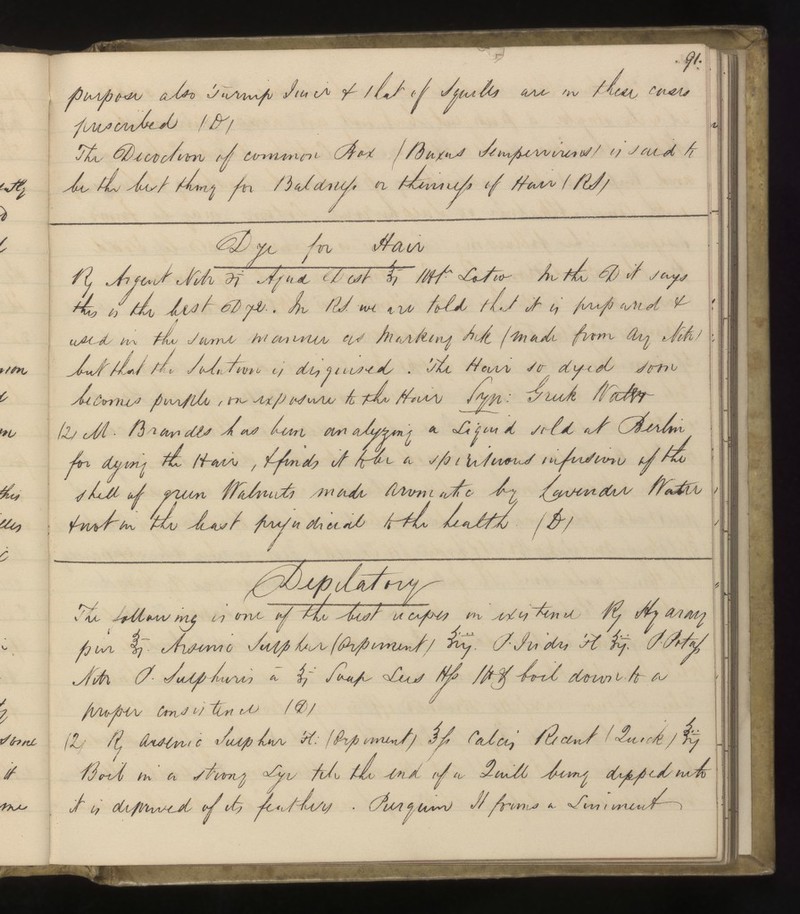 91.
purpose also Turnip Juice & that of Squills are in these cases
prescribed (D)
The Decoction of common Box (Buxus Sempervirens) is said to
be the best thing for Baldness or thinness of Hair (RS)
Dye for Hair
℞ Argent Nitr ʒj Aqua Dest ℥j Mft Lotio In the D it says
this is the best Dye. In RS we are told that it is prepared &
used in the same manner as Marking Ink (made from Arg Nitr)
but that the Solution is disguised. The Hair so dyed soon
becomes purple, on exposure to the Hair Syn: Greek Water
(2) M. Brandes has been analyzing a Liquid sold at Berlin
for dying the Hair, & finds it to be a spirituous infusion of the
shell of green Walnuts made aromatic by Lavender Water
& not in the least prejudicial to the health (D)
Depilatory
The following is one of the best recipes in existence ℞ Hy arg
pur ℥j Arsenic Sulphur (Orpiment) P. Iridis Fl P. Potass
Nitr P. Sulphuris a ℥j Soap Lees boil down to a
proper consistence (D)
(2) ℞ Arsenic Sulphur Fl: (Orpiment) ℥ss Calcis Recent (Quick)
Boil in a strong Lye till the end of a Quill being dipped into
it is deprived of its feathers. Perguim It forms a Liniment